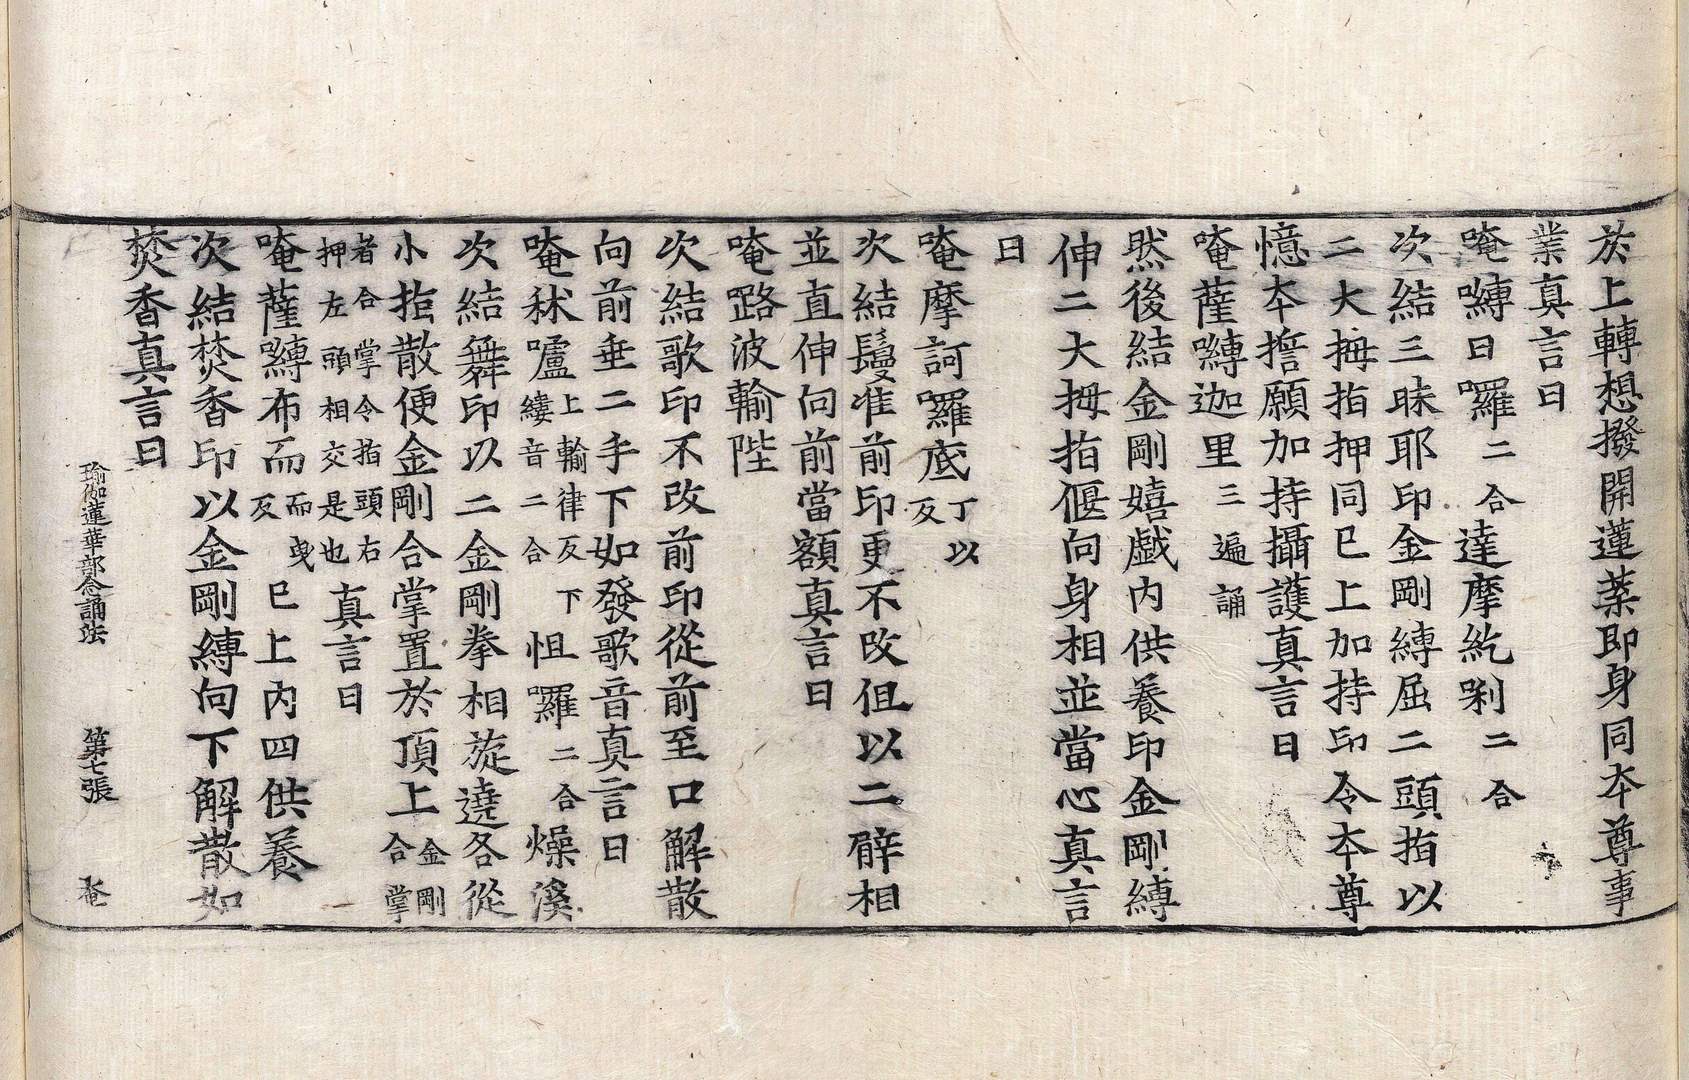 於上轉想撥開蓮葉即身同本尊事
業真言曰
唵嚩日囉二合達摩紇唎二合
次結三昧耶印金剛縛屈二頭指以
二大拇指押同已上加持印令本尊
憶本誓願加持攝護真言曰
唵薩嚩迦里三遍誦
然後結金剛嬉戲內供養印金剛縛
伸二大拇指偃向身相並當心真言
曰
唵摩訶囉底丁以反
次結鬘准前印更不改但以二臂相
並直伸向前當額真言曰
唵路波輸陛
次結歌印不改前印從前至口解散
向前垂二手下如發歌音真言曰
唵秫嚧上輸律反下縷音二合怛囉二合燥溪
次結舞印以二金剛拳相旋遶各從
小指散便金剛合掌置於頂上金剛合掌
者合掌令指頭右押左頭相交是也真言曰
唵薩嚩布而而曳反已上內四供養
次結焚香印以金剛縛向下解散如
焚香真言曰
瑜伽蓮華部念誦法 第七張 菴